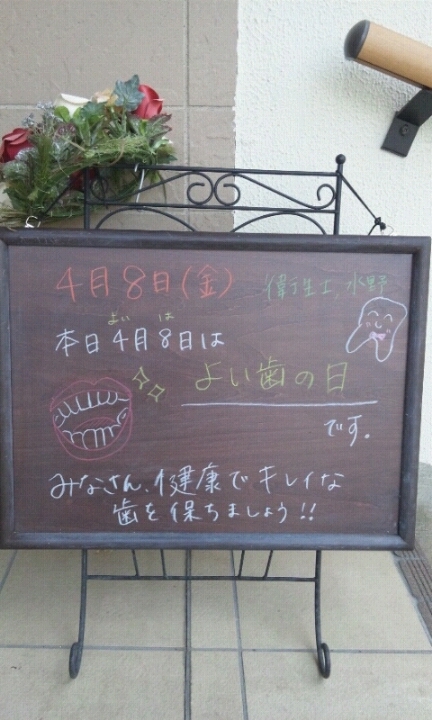 4月8日(金) 衛生士 水野
よい は
本日4月8日は
よい歯の日
です。
みなさん、健康でキレイな
歯を保ちましょう!!